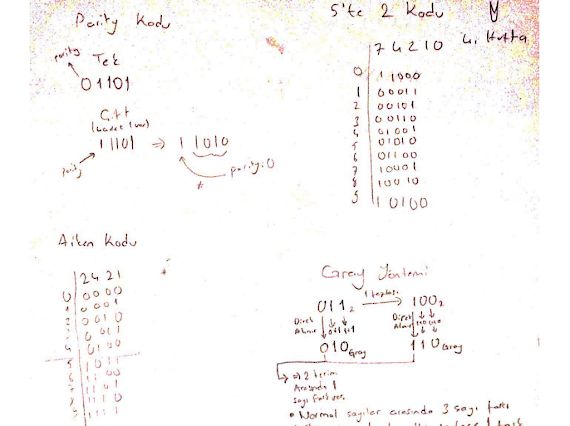 Parity Kodu
parity Tek
01101
Çift
11101 ⇒ 11010
parity
parity: 0
*
5'te 2 Kodu
4. Hafta
7 4 2 1 0
0 11000
1 00011
2 00101
3 00110
4 01001
5 01010
6 01100
7 10001
8 10010
9 10100
Aiken Kodu
2 4 2 1
0 0000
1 0001
2 0010
3 0011
4 0100
5 1011
6 1100
7 1101
8 1110
9 1111
Gray Yöntemi
011₂ 1 fazlası 100₂
Direk
Alınır
Direk
Alınır
010 Gray 110 Gray
⇒ 2 terim
Arasında 1
Sayı fark var.
• Normal sayılar arasında 3 sayı farkı